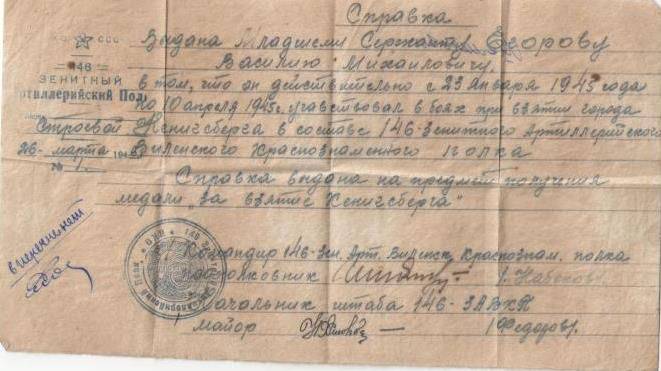 СССР
146
ЗЕНИТНЫЙ
АРТИЛЛЕРИЙСКИЙ Полк
Строевой
26 марта 194
№ 1.
Справка
Выдана Младшему Сержанту Егорову
Василию Михаиловичу.
в том, что он действительно с 23 Января 1945 года
по 10 апреля 1945 г. учавствовал в боях при взятии города
Кенигсберга в составе 146-Зенитного Артиллерийского
Виленского Краснознаменного полка
Справка выдана на предмет получения
медали „За взятие Кенигсберга"
Командир 146-Зен. Арт. Виленск. Краснознам. полка
подполковник
Начальник штаба 146-ЗАВКП
майор /Федоров/.